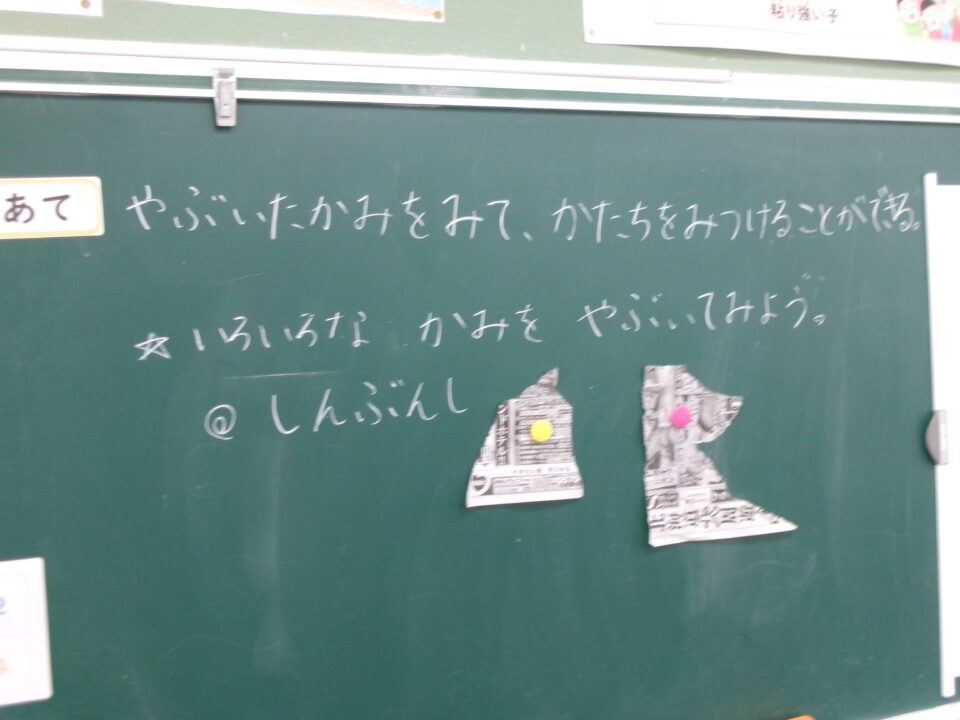 粘り強い子
あて
やぶいたかみをみて、かたちをみつけることができる。
☆いろいろな かみを やぶいてみよう。
@ しんぶんし